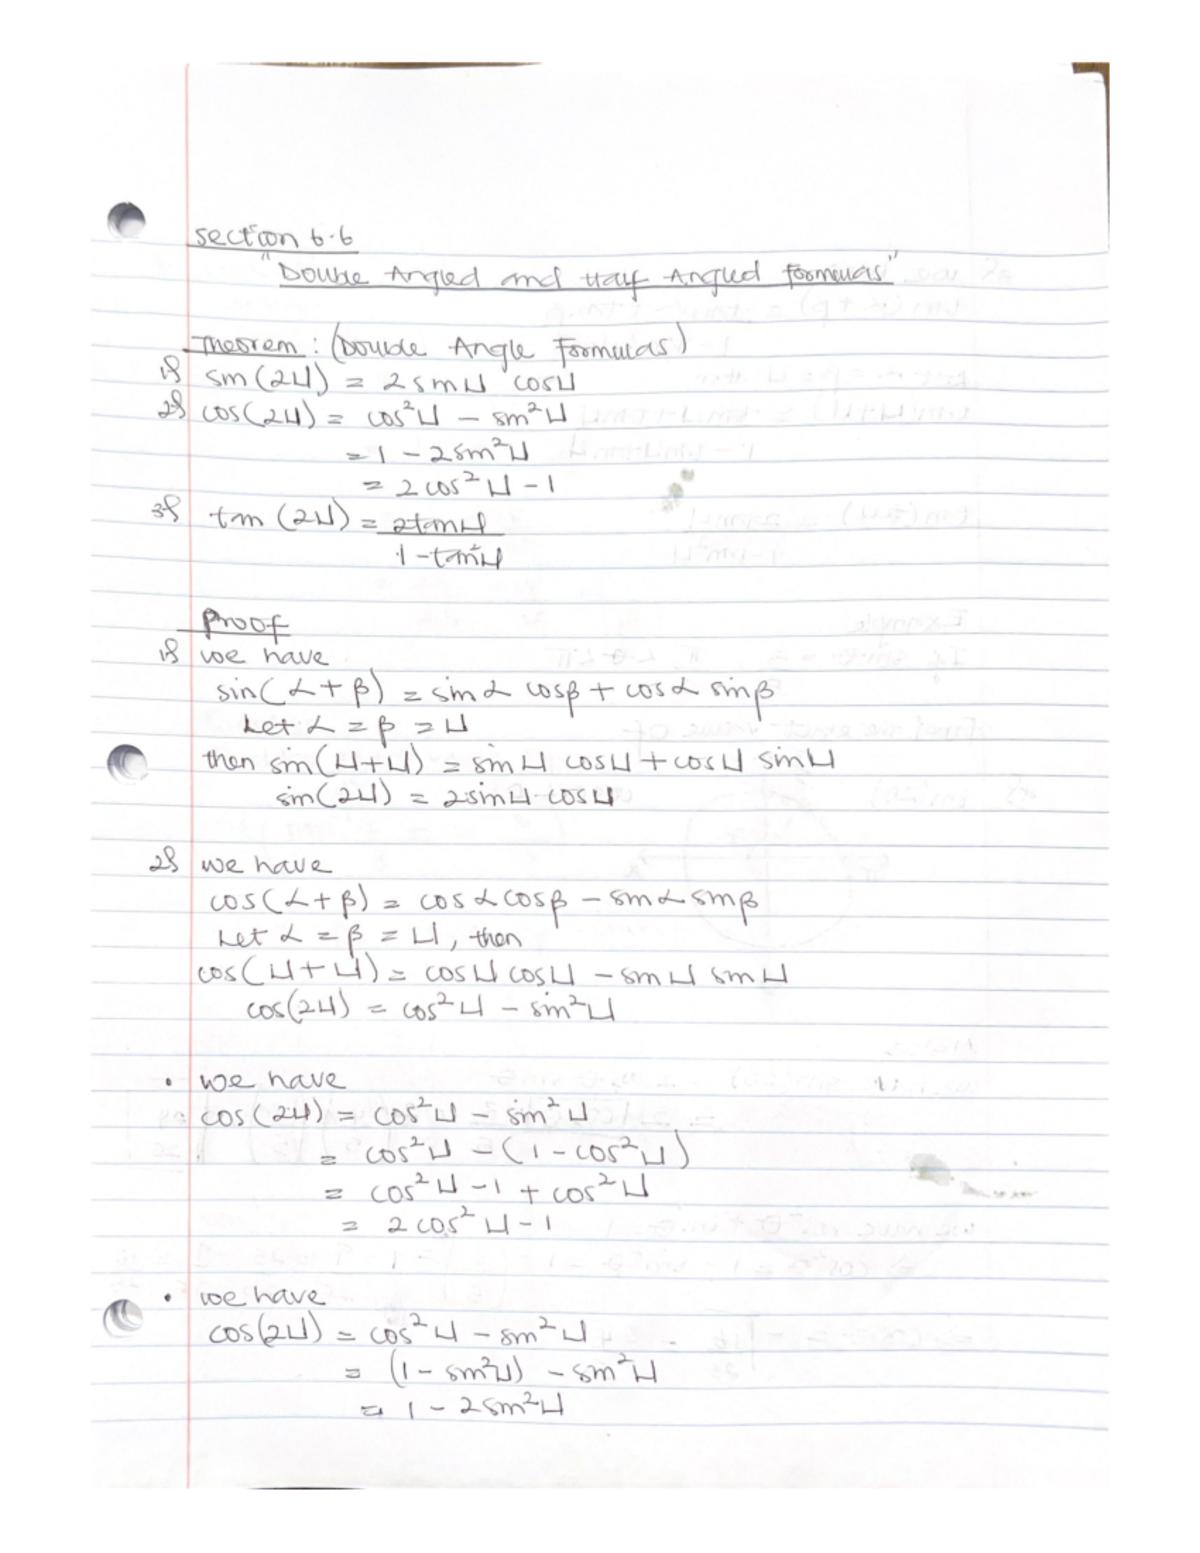 section 6.6
"Double Angled and Half Angled Formulas"
Theorem : (Double Angle Formulas)
1) sin(2u) = 2 sin u cos u
2) cos(2u) = cos²u - sin²u
= 1 - 2 sin²u
= 2 cos²u - 1
3) tan(2u) = 2tan u
1 - tan²u
Proof
1) we have
sin(α + β) = sin α cos β + cos α sin β
Let α = β = u
then sin(u+u) = sin u cos u + cos u sin u
sin(2u) = 2 sin u cos u
2) we have
cos(α + β) = cos α cos β - sin α sin β
Let α = β = u, then
cos(u+u) = cos u cos u - sin u sin u
cos(2u) = cos²u - sin²u
• we have
cos(2u) = cos²u - sin²u
= cos²u - (1 - cos²u)
= cos²u - 1 + cos²u
= 2 cos²u - 1
• we have
cos(2u) = cos²u - sin²u
= (1 - sin²u) - sin²u
= 1 - 2 sin²u